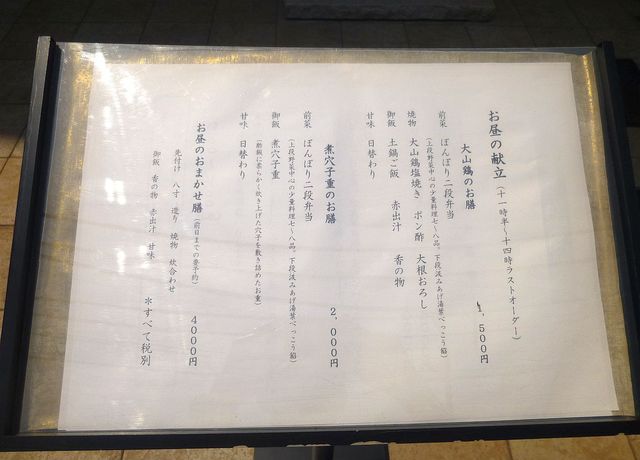 お昼の献立（十一時半～十四時ラストオーダー）
大山鶏のお膳　１，５００円
前菜　ぼんぼり二段弁当
（上段野菜中心の少量料理七～八品。下段汲みあげ湯葉べっこう餡）
焼物　大山鶏塩焼き　ポン酢　大根おろし
御飯　土鍋ご飯　赤出汁　香の物
甘味　日替わり
煮穴子重のお膳　２，０００円
前菜　ぼんぼり二段弁当
（上段野菜中心の少量料理七～八品。下段汲みあげ湯葉べっこう餡）
御飯　煮穴子重
（酢飯に柔らかく炊き上げた穴子を敷き詰めたお重）
甘味　日替わり
お昼のおまかせ膳（前日までの要予約）　４０００円
先付け　八寸　造り　焼物　炊合わせ
御飯　香の物　赤出汁　甘味　＊すべて税別